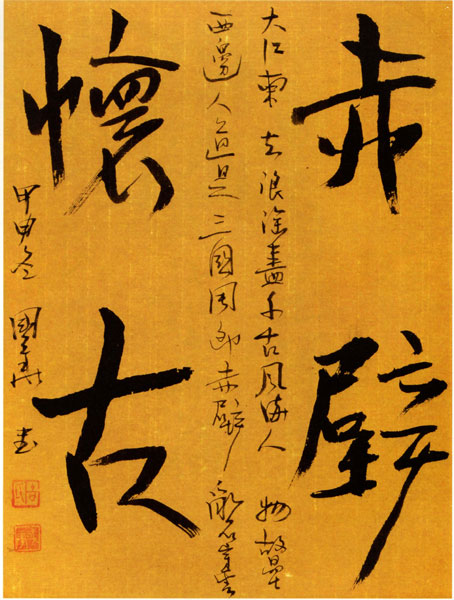 赤壁
大江東去浪淘盡千古風流人物故壘
西邊人道是三國周郎赤壁亂石穿空
懷古
甲申冬 國 書